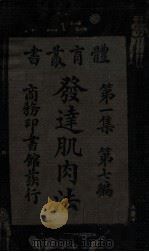 體育叢書
第一集 第七編
發達肌肉法
商務印書館發行